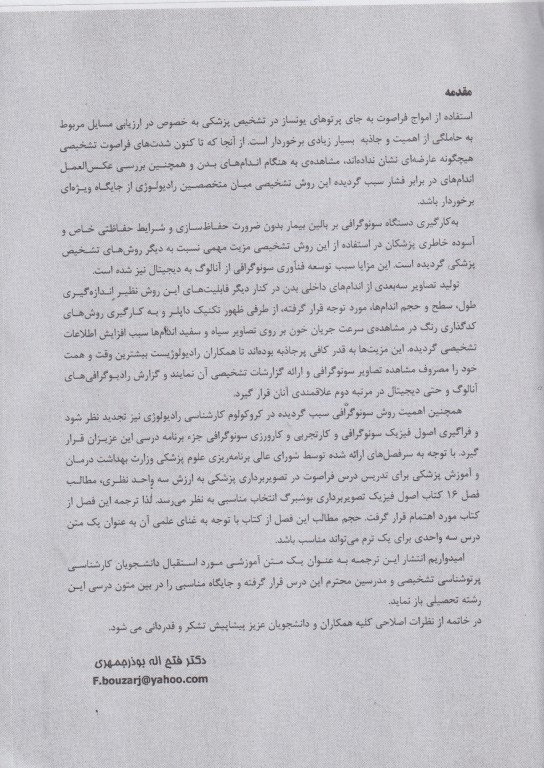 مقدمه
استفاده از امواج فراصوت به جای پرتوهای یونساز در تشخیص پزشکی به خصوص در ارزیابی مسایل مربوط
به حاملگی از اهمیت و جاذبه بسیار زیادی برخوردار است. از آنجا که تا کنون شدت‌های فراصوت تشخیصی
هیچگونه عارضه‌ای نشان نداده‌اند، مشاهده‌ی به هنگام اندام‌های بدن و همچنین بررسی عکس‌العمل
اندام‌های در برابر فشار سبب گردیده این روش تشخیصی میان متخصصین رادیولوژی از جایگاه ویژه‌ای
برخوردار باشد.
به‌کارگیری دستگاه سونوگرافی بر بالین بیمار بدون ضرورت حفاظ‌سازی و شرایط حفاظتی خاص و
آسوده خاطری پزشکان در استفاده از این روش تشخیصی مزیت مهمی نسبت به دیگر روش‌های تشخیص
پزشکی گردیده است. این مزایا سبب توسعه فنآوری سونوگرافی از آنالوگ به دیجیتال نیز شده است.
تولید تصاویر سه‌بعدی از اندام‌های داخلی بدن در کنار دیگر قابلیت‌های این روش نظیر اندازه‌گیری
طول، سطح و حجم اندام‌ها، مورد توجه قرار گرفته، از طرفی ظهور تکنیک داپلر و به کارگیری روش‌های
کدگذاری رنگ در مشاهده‌ی سرعت جریان خون بر روی تصاویر سیاه و سفید اندام‌ها سبب افزایش اطلاعات
تشخیصی گردیده. این مزیت‌ها به قدر کافی پرجاذبه بوده‌اند تا همکاران رادیولوژیست بیشترین وقت و همت
خود را مصروف مشاهده تصاویر سونوگرافی و ارائه گزارشات تشخیصی آن نمایند و گزارش رادیوگرافی‌های
آنالوگ و حتی دیجیتال در مرتبه دوم علاقمندی آنان قرار گیرد.
همچنین اهمیت روش سونوگرافی سبب گردیده در کروکولوم کارشناسی رادیولوژی نیز تجدید نظر شود
و فراگیری اصول فیزیک سونوگرافی و کارتجربی و کارورزی سونوگرافی جزء برنامه درسی این عزیزان قرار
گیرد. با توجه به سرفصل‌های ارائه شده توسط شورای عالی برنامه‌ریزی علوم پزشکی وزارت بهداشت درمان
و آموزش پزشکی برای تدریس درس فراصوت در تصویربرداری پزشکی به ارزش سه واحد نظری، مطالب
فصل ۱۶ کتاب اصول فیزیک تصویربرداری بوشبرگ انتخاب مناسبی به نظر می‌رسد. لذا ترجمه این فصل از
کتاب مورد اهتمام قرار گرفت. حجم مطالب این فصل از کتاب با توجه به غنای علمی آن به عنوان یک متن
درس سه واحدی برای یک ترم می‌تواند مناسب باشد.
امیدواریم انتشار این ترجمه به عنوان یک متن آموزشی مورد استقبال دانشجویان کارشناسی
پرتوشناسی تشخیصی و مدرسین محترم این درس قرار گرفته و جایگاه مناسبی را در بین متون درسی این
رشته تحصیلی باز نماید.
در خاتمه از نظرات اصلاحی کلیه همکاران و دانشجویان عزیز پیشاپیش تشکر و قدردانی می شود.
دکتر فتح اله بوذرجمهری
F.bouzarj@yahoo.com